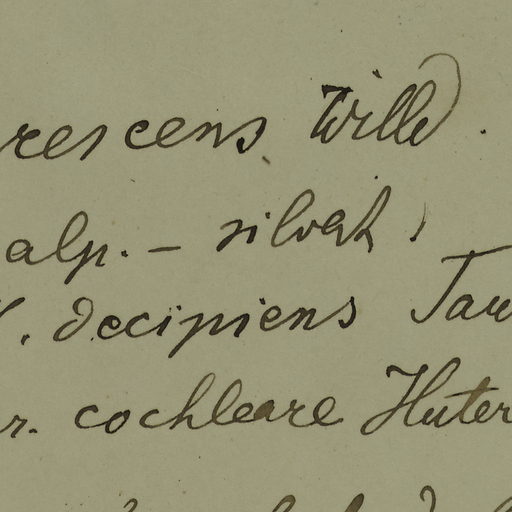 rescens Willd.
alp. – silvat!
. decipiens Tau
r. cochleare Huter